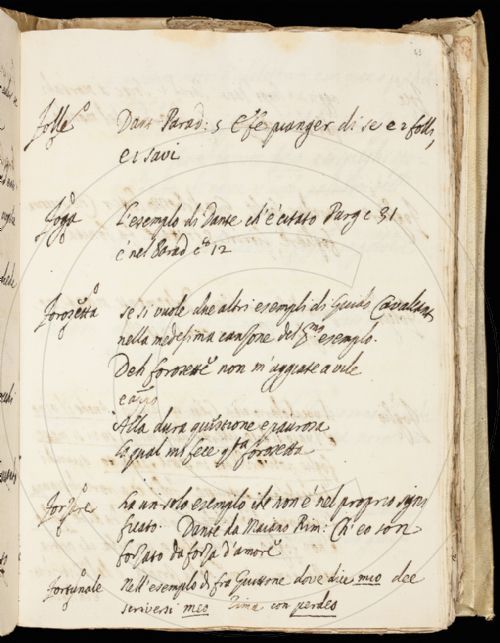 43
Folle
Dant Parad: 5 E fe pianger di se e i folli,
e i savi
Foga
L'esemplo di Dante ch'è citato Purg c 31
è nel Parad cº 12
Forosetta
se si vuole due altri esempli di Guido Cavalcant
nella medesima canzone del pmo esemplo.
Deh forosette non m'aggiate a vile
e appº
Alla dura quistione e paurosa
La qual mi fece qta forosetta
Forzare
ha un solo esemplo che non è nel proprio signi
ficato. Dante da Maiano Rim: Ch'eo son
forzato da forza d'amore
Fortunale
Nell'esemplo di fra Guittone dove dice mio dee
scriversi meo rima con perdeo